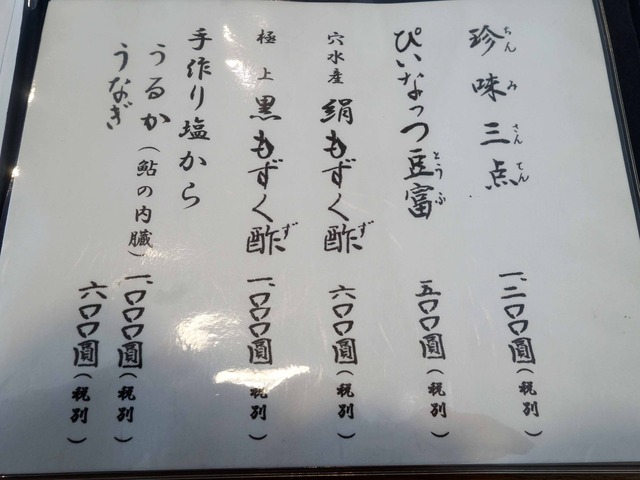 珍味三点 一、二〇〇圓(税別)
ちんみさんてん
ぴいなっつ豆富 五〇〇圓(税別)
とうふ
穴水産 絹もずく酢 六〇〇圓(税別)
ず
極上 黒もずく酢 一、〇〇〇圓(税別)
ず
手作り塩から
うるか(鮎の内臓) 一、〇〇〇圓(税別)
うなぎ 六〇〇圓(税別)